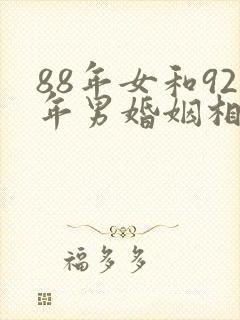 88年女和92
年男婚姻相
福多多